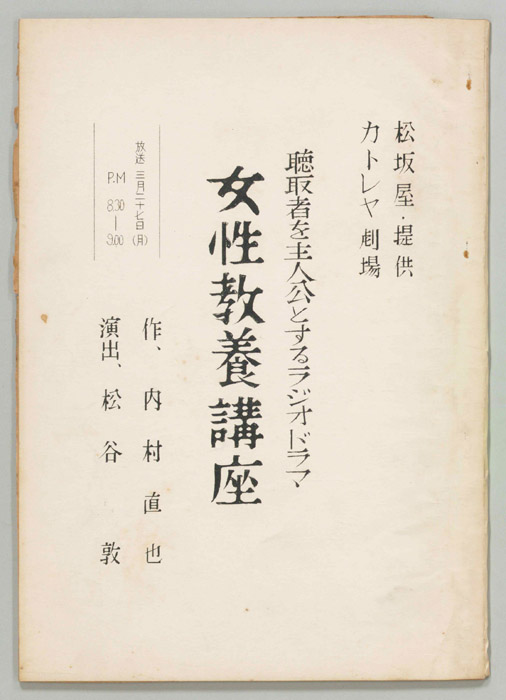 松坂屋・提供
カトレヤ劇場
聴取者を主人公とするラジオドラマ
女性教養講座
放送 三月二十七日(月)
P.M 8.30―9.00
作、内村直也
演出、松谷敦